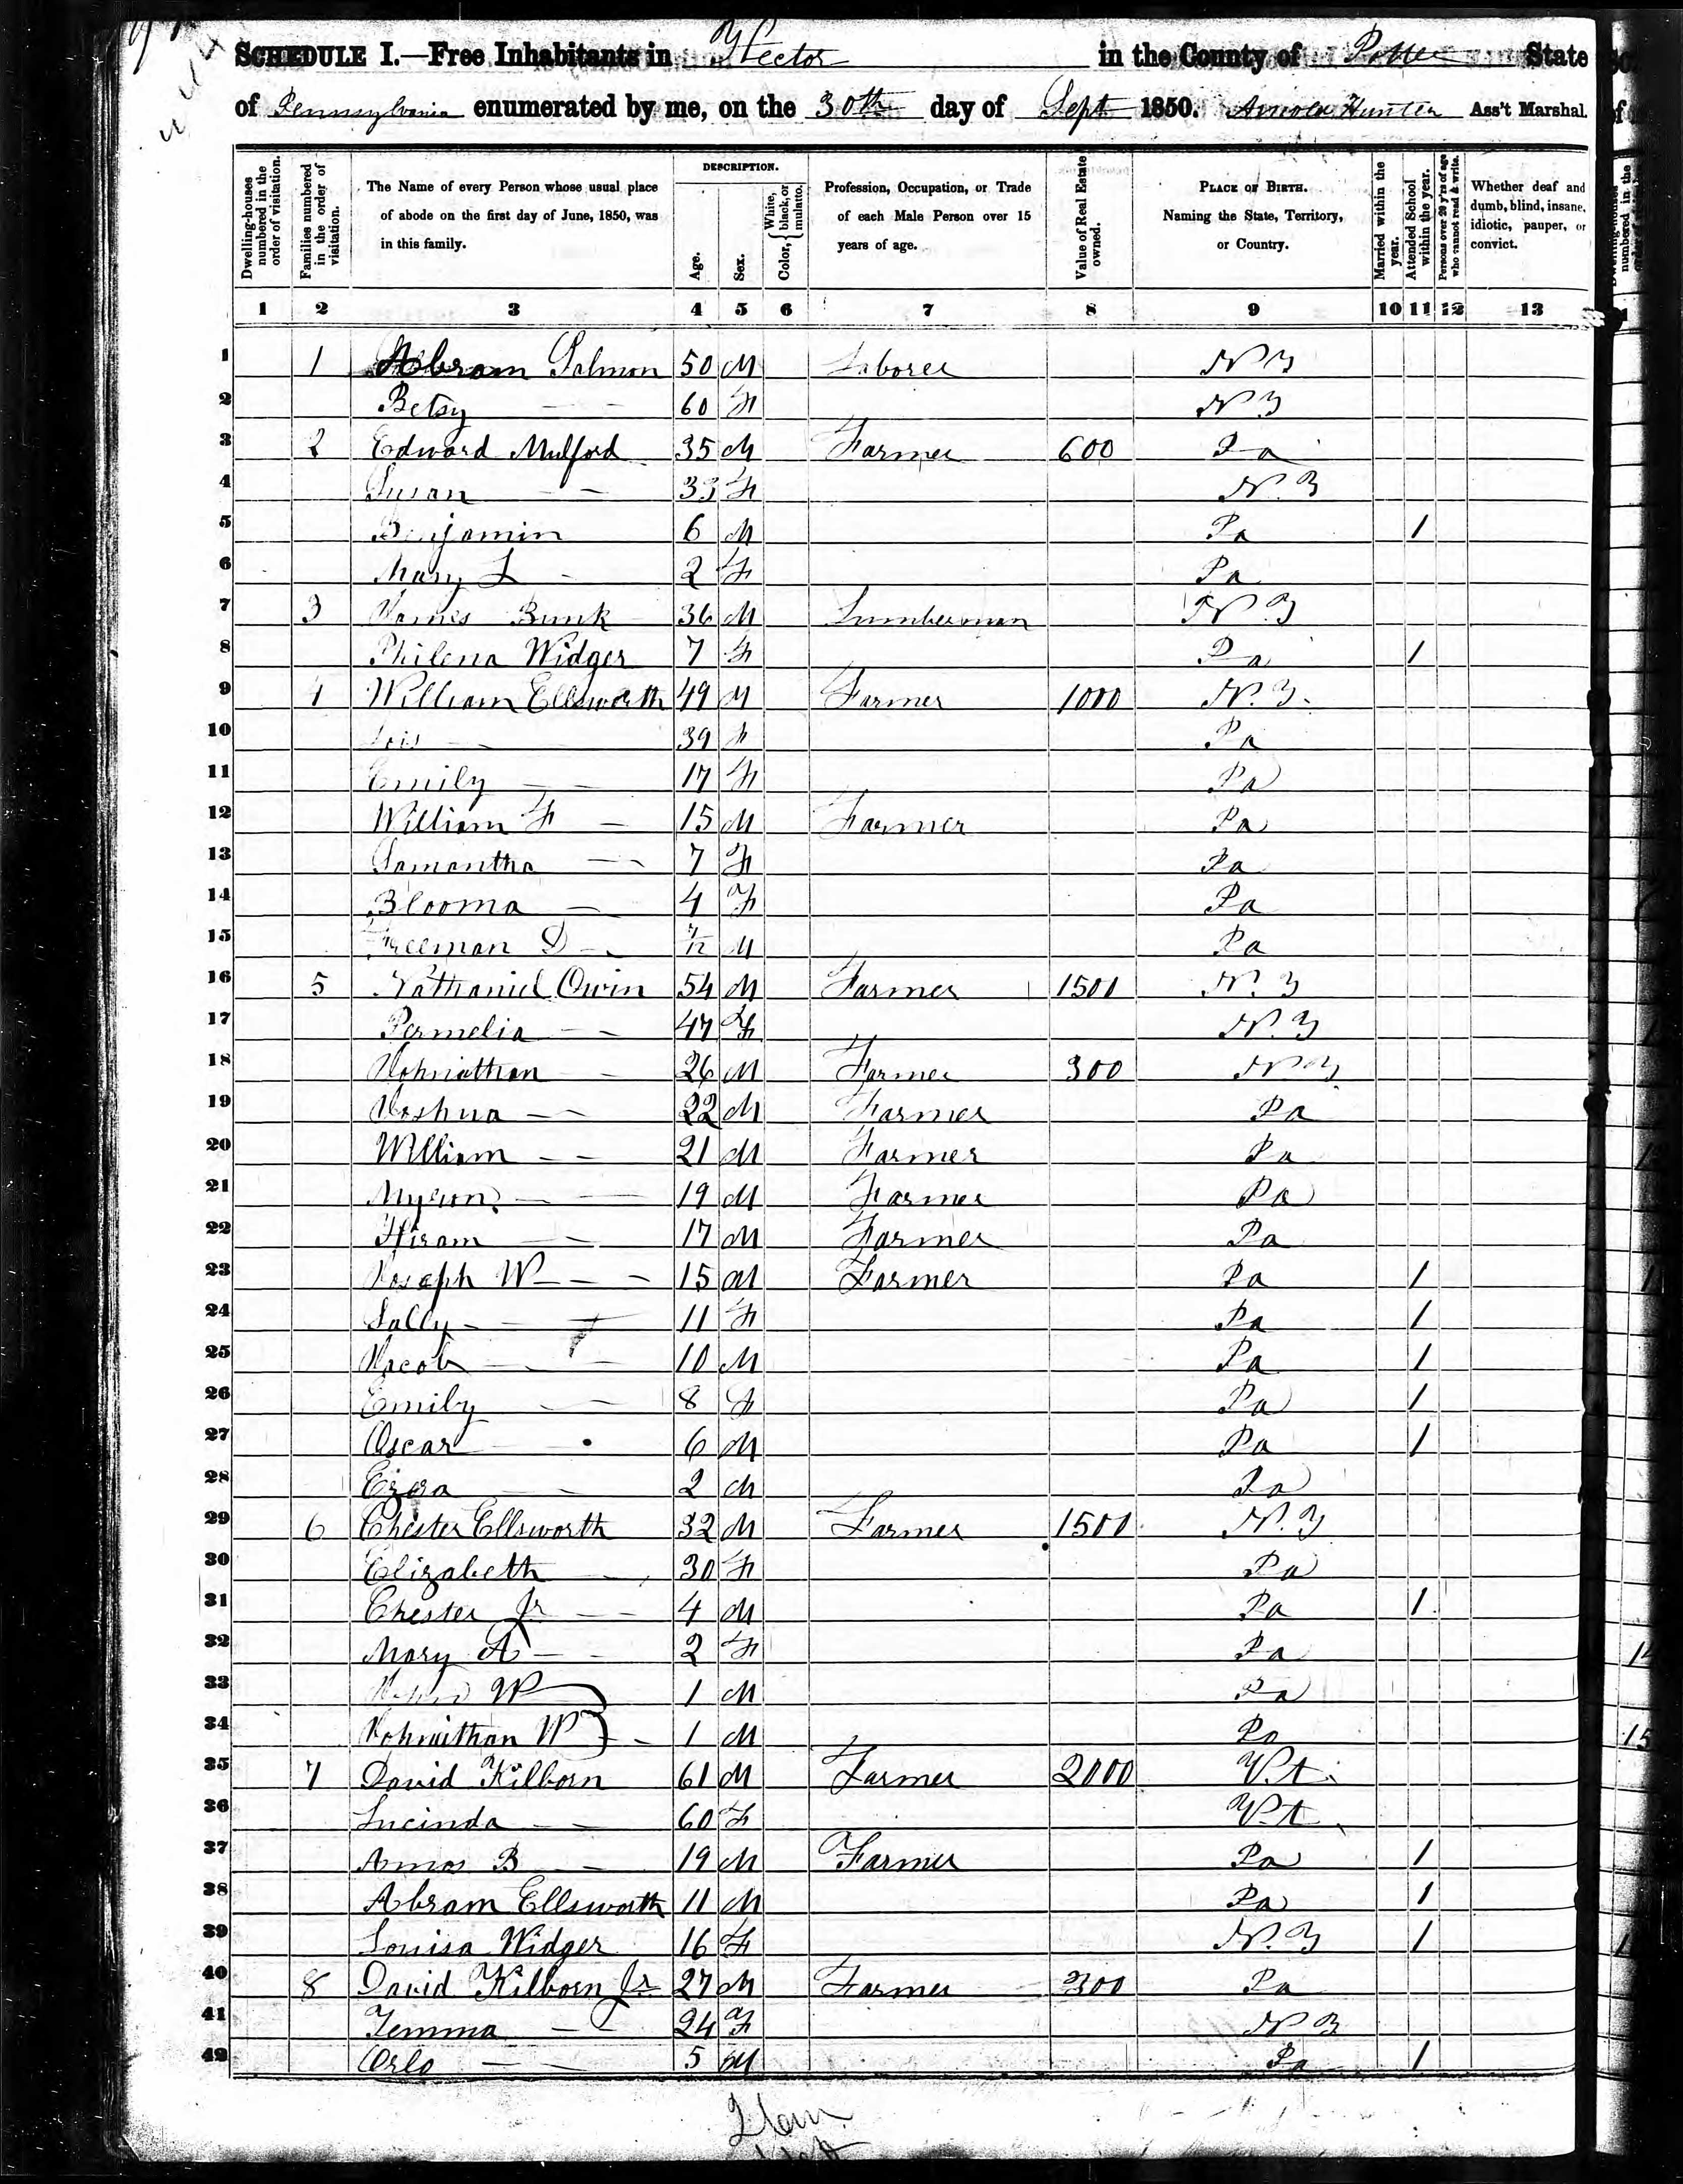 SCHEDULE I.—Free Inhabitants in Hector in the County of Potter State
of Pennsylvania enumerated by me, on the 30th day of Sept 1850. Arnold Hunter Ass't Marshal.
Dwelling-houses numbered in the order of visitation.
Families numbered in the order of visitation.
The Name of every Person whose usual place of abode on the first day of June, 1850, was in this family.
DESCRIPTION.
Age.
Sex.
Color, { White, black, or mulatto.
Profession, Occupation, or Trade of each Male Person over 15 years of age.
Value of Real Estate owned.
PLACE OF BIRTH. Naming the State, Territory, or Country.
Married within the year.
Attended School within the year.
Persons over 20 y'rs of age who cannot read & write.
Whether deaf and dumb, blind, insane, idiotic, pauper, or convict.
1 2 3 4 5 6 7 8 9 10 11 12 13
1 1 Abram Salmon 50 M Laborer N Y
2 Betsy — — 60 F N Y
3 2 Edward Mulford 35 M Farmer 600 Pa
4 Susan — — 33 F N. Y
5 Benjamin 6 M Pa 1
6 Mary L - 2 F Pa
7 3 James Bunk 36 M Lumberman N. Y
8 Philena Widger 7 F Pa 1
9 4 William Ellsworth 49 M Farmer 1000 N. Y.
10 Lois — 39 F Pa
11 Emily — — 17 F Pa
12 William F — 15 M Farmer Pa
13 Samantha — 7 F Pa
14 Blooma — 4 F Pa
15 Freeman D — M Pa
16 5 Nathaniel Owin 54 M Farmer 1500 N. Y
17 Permelia — — 47 F N. Y
18 Johnathan — 26 M Farmer 300 N Y
19 Joshua — — 22 M Farmer Pa
20 William — — 21 M Farmer Pa
21 Myron — — 19 M Farmer Pa
22 Hiram — — 17 M Farmer Pa
23 Joseph W — — 15 M Farmer Pa 1
24 Sally — — 11 F Pa 1
25 Jacob — — 10 M Pa 1
26 Emily — — 8 F Pa 1
27 Oscar — 6 M Pa 1
28 Ezra — 2 M Pa
29 6 Chester Ellsworth 32 M Farmer 1500 N. Y
30 Elizabeth — 30 F Pa
31 Chester Jr — — 4 M Pa 1
32 Mary A — 2 F Pa
33 W 1 M Pa
34 Johnathan W } — 1 M Pa
35 7 David Kilborn 61 M Farmer 2000 V.t.
36 Lucinda — — 60 F V.t.
37 Amos B — 19 M Farmer Pa 1
38 Abram Ellsworth 11 M Pa 1
39 Louisa Widger 16 F N. Y 1
40 8 David Kilborn Jr 27 M Farmer 300 Pa
41 Temma — 24 F N Y
42 Orlo — — 5 M Pa 1